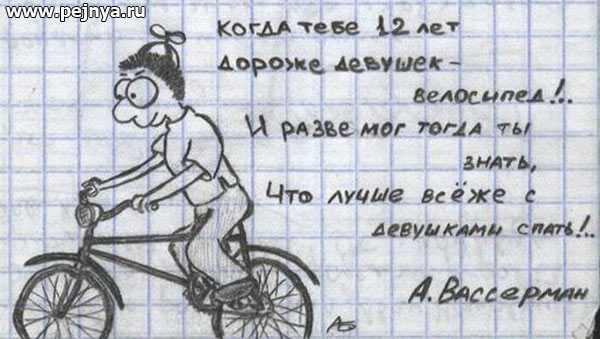 www.pejnya.ru
когда тебе 12 лет
дороже девушек –
велосипед!..
И разве мог тогда ты
знать,
Что лучше всёже с
девушками спать!..
А. Вассерман
АБ